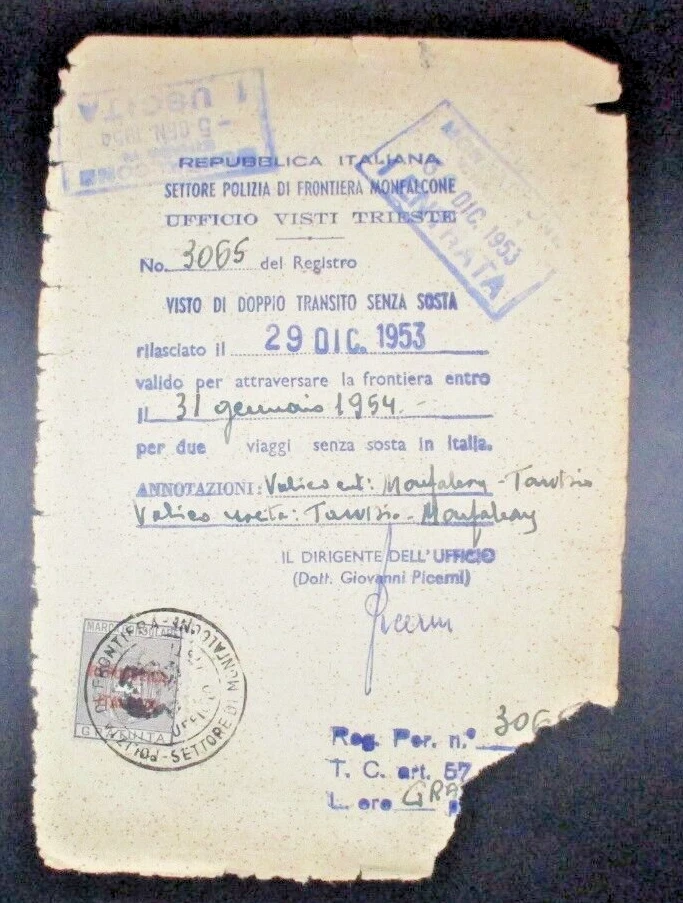 1 USCITA
- 5 GEN. 1954
MONFALCONE
DIC. 1953
1 ENTRATA
REPUBBLICA ITALIANA
SETTORE POLIZIA DI FRONTIERA MONFALCONE
UFFICIO VISTI TRIESTE
No. 3065 del Registro
VISTO DI DOPPIO TRANSITO SENZA SOSTA
rilasciato il 29 DIC. 1953
valido per attraversare la frontiera entro
il 31 gennaio 1954.-
per due viaggi senza sosta in Italia.
ANNOTAZIONI: Valico ent: Monfalcone - Tarvisio
Valico uscita: Tarvisio - Monfalcone
IL DIRIGENTE DELL'UFFICIO
(Dott. Giovanni Picerni)
Picerni
MARCA CONSOLARE
GRATUITA
POLIZIA FRONTIERA
SETTORE DI MONFALCONE
Reg. Per. n.° 306
T. C. art. 57
L. ore GRA